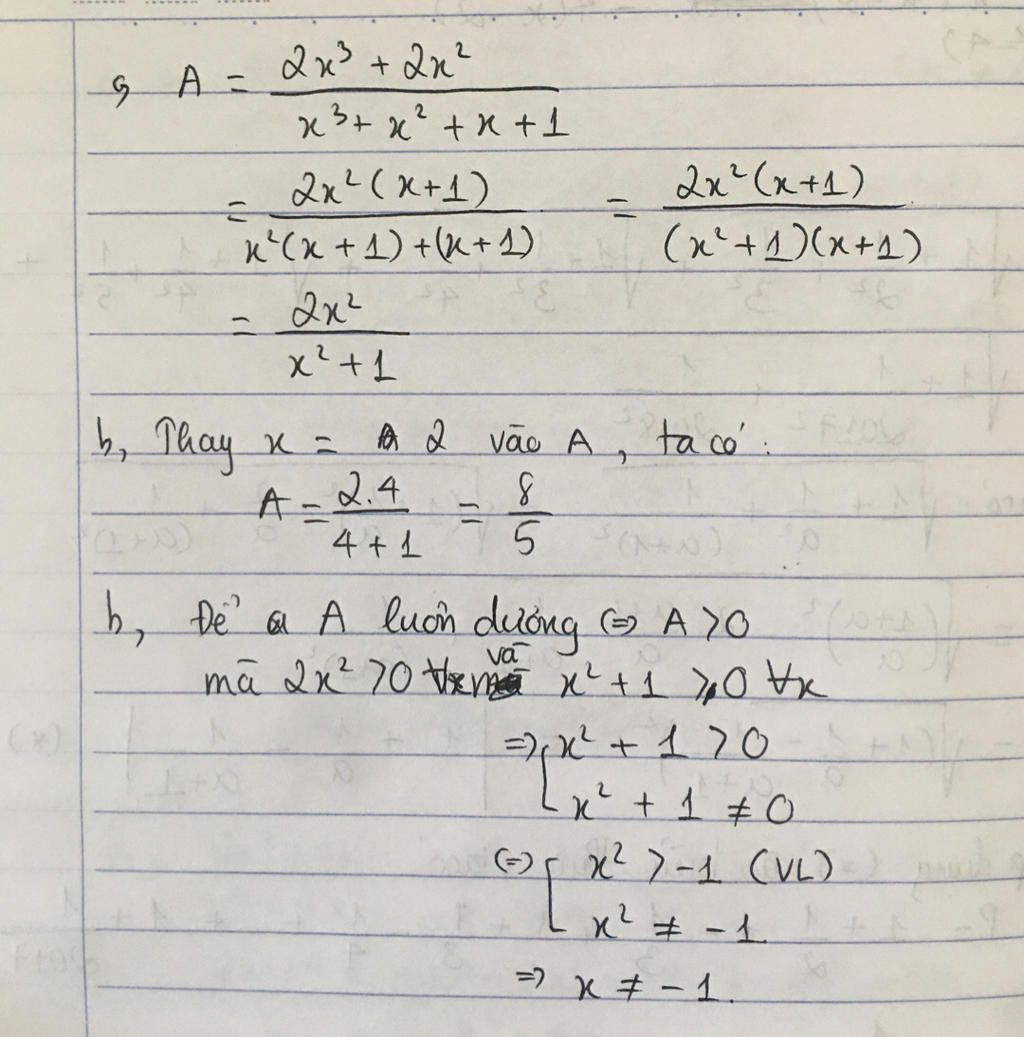 a, A = (2x³ + 2x²)/(x³ + x² + x + 1)
= (2x²(x+1))/(x²(x+1)+(x+1)) = (2x²(x+1))/((x²+1)(x+1))
= 2x²/(x²+1)
b, Thay x = 2 vào A, ta có:
A = 2.4/(4+1) = 8/5
b, Để A luôn dương ⇔ A > 0
mà 2x² > 0 ∀x và x² + 1 ⩾ 0 ∀x
⇒ [ x² + 1 > 0
x² + 1 ≠ 0
⇔ [ x² > -1 (VL)
x² ≠ -1
⇒ x ≠ -1.